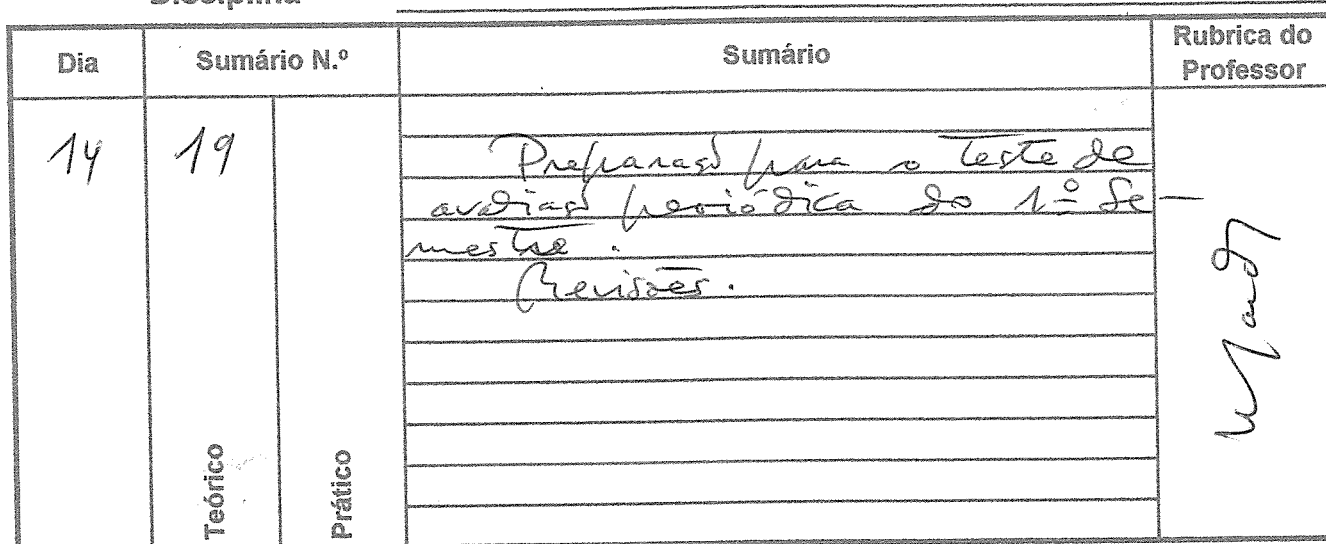 Disciplina
Dia
Sumário N.º
Sumário
Rubrica do
Professor
14
19
Preparação para o teste de
avaliação periódica do 1º Se-
mestre.
Revisões.
Teórico
Prático